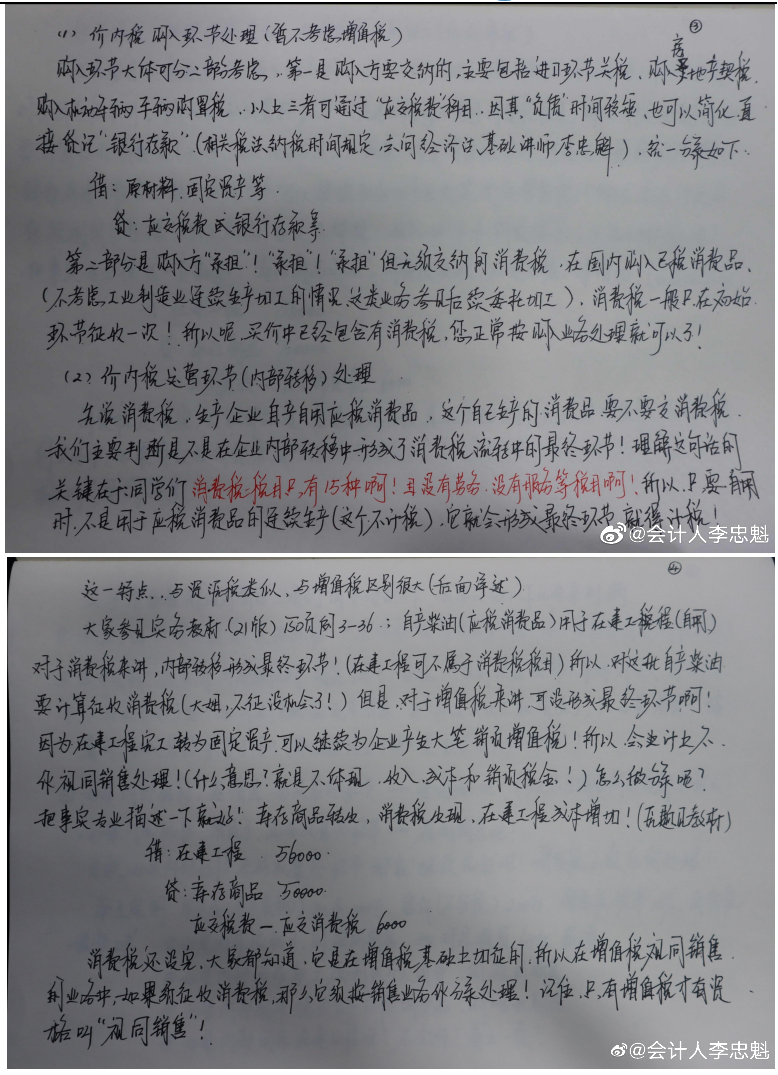 ③
(1) 价内税购入环节处理(暂不考虑增值税)
购入环节大体可分二部分考虑。第一是购入方要交纳的,主要包括进口环节关税、购入房地产契税、
购入机动车辆车辆购置税。以上三者可通过“应交税费”科目,因其“负债”时间较短,也可以简化,直
接贷记“银行存款”(相关税法纳税时间规定,六问经济法基础讲师李忠魁)。统一分录如下:
借:原材料、固定资产等
贷:应交税费或银行存款等
第二部分是购入方“承担”!“承担”!“承担”但无须交纳的消费税。在国内购入已税消费品,
(不考虑工业制造业连续生产加工的情况,这类业务参见后续委托加工),消费税一般只在初始
环节征收一次!所以呢,买价中已经包含有消费税,您正常按购入业务处理就可以了!
(2) 价内税运营环节(内部转移)处理
先说消费税,生产企业自产自用应税消费品,这个自己生产的消费品要不要交消费税,
我们主要判断是不是在企业内部转移中形成了消费税流转中的最终环节!理解这句话的
关键在于同学们消费税税目只有15种啊!且没有劳务、没有服务等税目啊!所以,只要自用
时,不是用于应税消费品的连续生产(这个不计税),它就会形成最终环节,就得计税!
@会计人李忠魁
④
这一特点,与资源税类似,与增值税区别很大(后面详述)
大家参见实务教材(21版)150页例3-36:自产柴油(应税消费品)用于在建工程(自用)
对于消费税来讲,内部转移形成最终环节!(在建工程可不属于消费税税目)所以,对这批自产柴油
要计算征收消费税(大姐,不征没机会了!)但是,对于增值税来讲,可没形成最终环节啊!
因为在建工程完工转为固定资产,可以继续为企业产生大笔销项增值税!所以,会计上不
作视同销售处理!(什么意思?就是不体现收入、成本和销项税金!)怎么做分录呢?
把事实专业描述一下就好!库存商品转出,消费税发现,在建工程成本增加!(原题见教材)
借:在建工程 56000
贷:库存商品 50000
应交税费—应交消费税 6000
消费税还没完,大家都知道,它是在增值税基础上加征的,所以在增值税视同销售
的业务中,如果须征收消费税,那么它须按销售业务作分录处理!记住,只有增值税才有资
格叫“视同销售”!
@会计人李忠魁